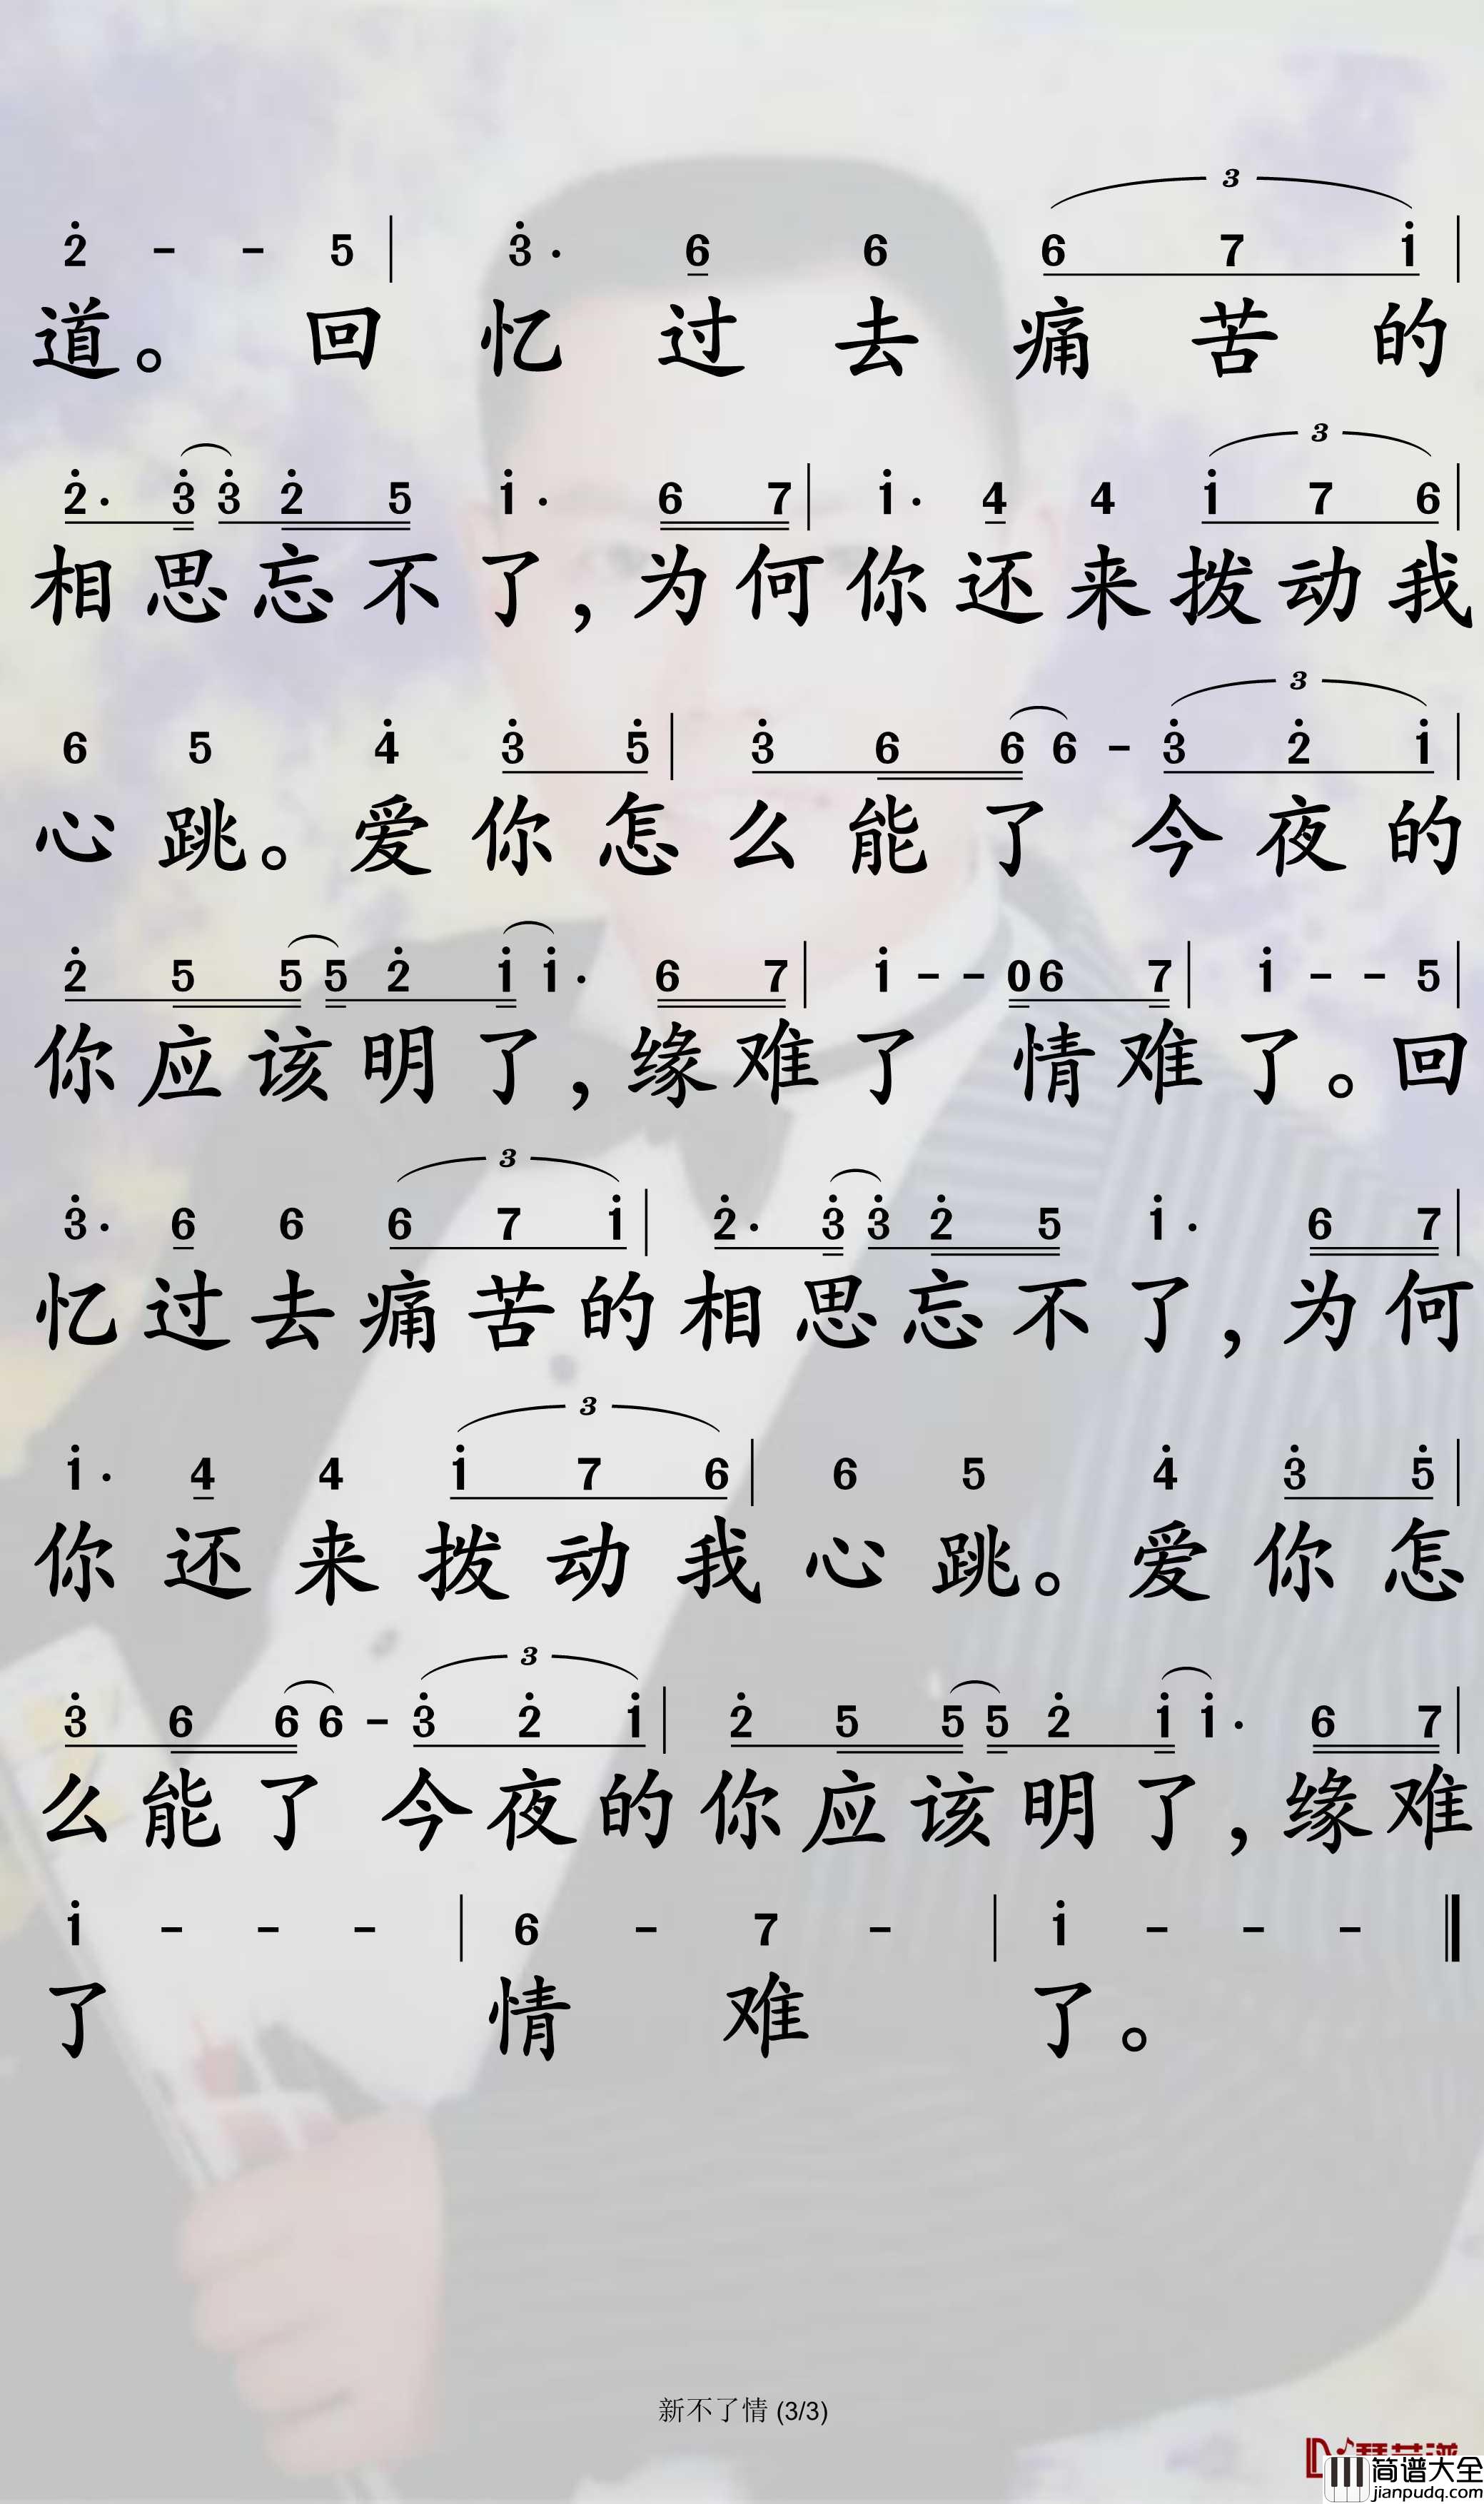 3
2̇ - - 5 | 3̇· 6 6 6 7 1̇ |
道。 回 忆 过 去 痛 苦 的
3
2̇· 3̇ 3̇ 2̇ 5 1̇· 6 7 | 1̇· 4 4 1̇ 7 6 |
相 思 忘 不 了，为 何 你 还 来 拨 动 我
3
6 5 4̇ 3̇ 5̇ | 3̇ 6 6 6 - 3̇ 2̇ 1̇ |
心 跳。爱 你 怎 么 能 了 今 夜 的
2̇ 5 5 5 2̇ 1̇ 1̇· 6 7 | 1̇ - - 0 6 7 | 1̇ - - 5 |
你 应 该 明 了，缘 难 了 情 难 了。回
3
3̇· 6 6 6 7 1̇ | 2̇· 3̇ 3̇ 2̇ 5 1̇· 6 7 |
忆 过 去 痛 苦 的 相 思 忘 不 了，为 何
3
1̇· 4 4 1̇ 7 6 | 6 5 4̇ 3̇ 5̇ |
你 还 来 拨 动 我 心 跳。爱 你 怎
3
3̇ 6 6 6 - 3̇ 2̇ 1̇ | 2̇ 5 5 5 2̇ 1̇ 1̇· 6 7 |
么 能 了 今 夜 的 你 应 该 明 了，缘 难
1̇ - - - | 6 - 7 - | 1̇ - - - ‖
了 情 难 了。
新不了情 (3/3)
简谱大全
jianpudq.com